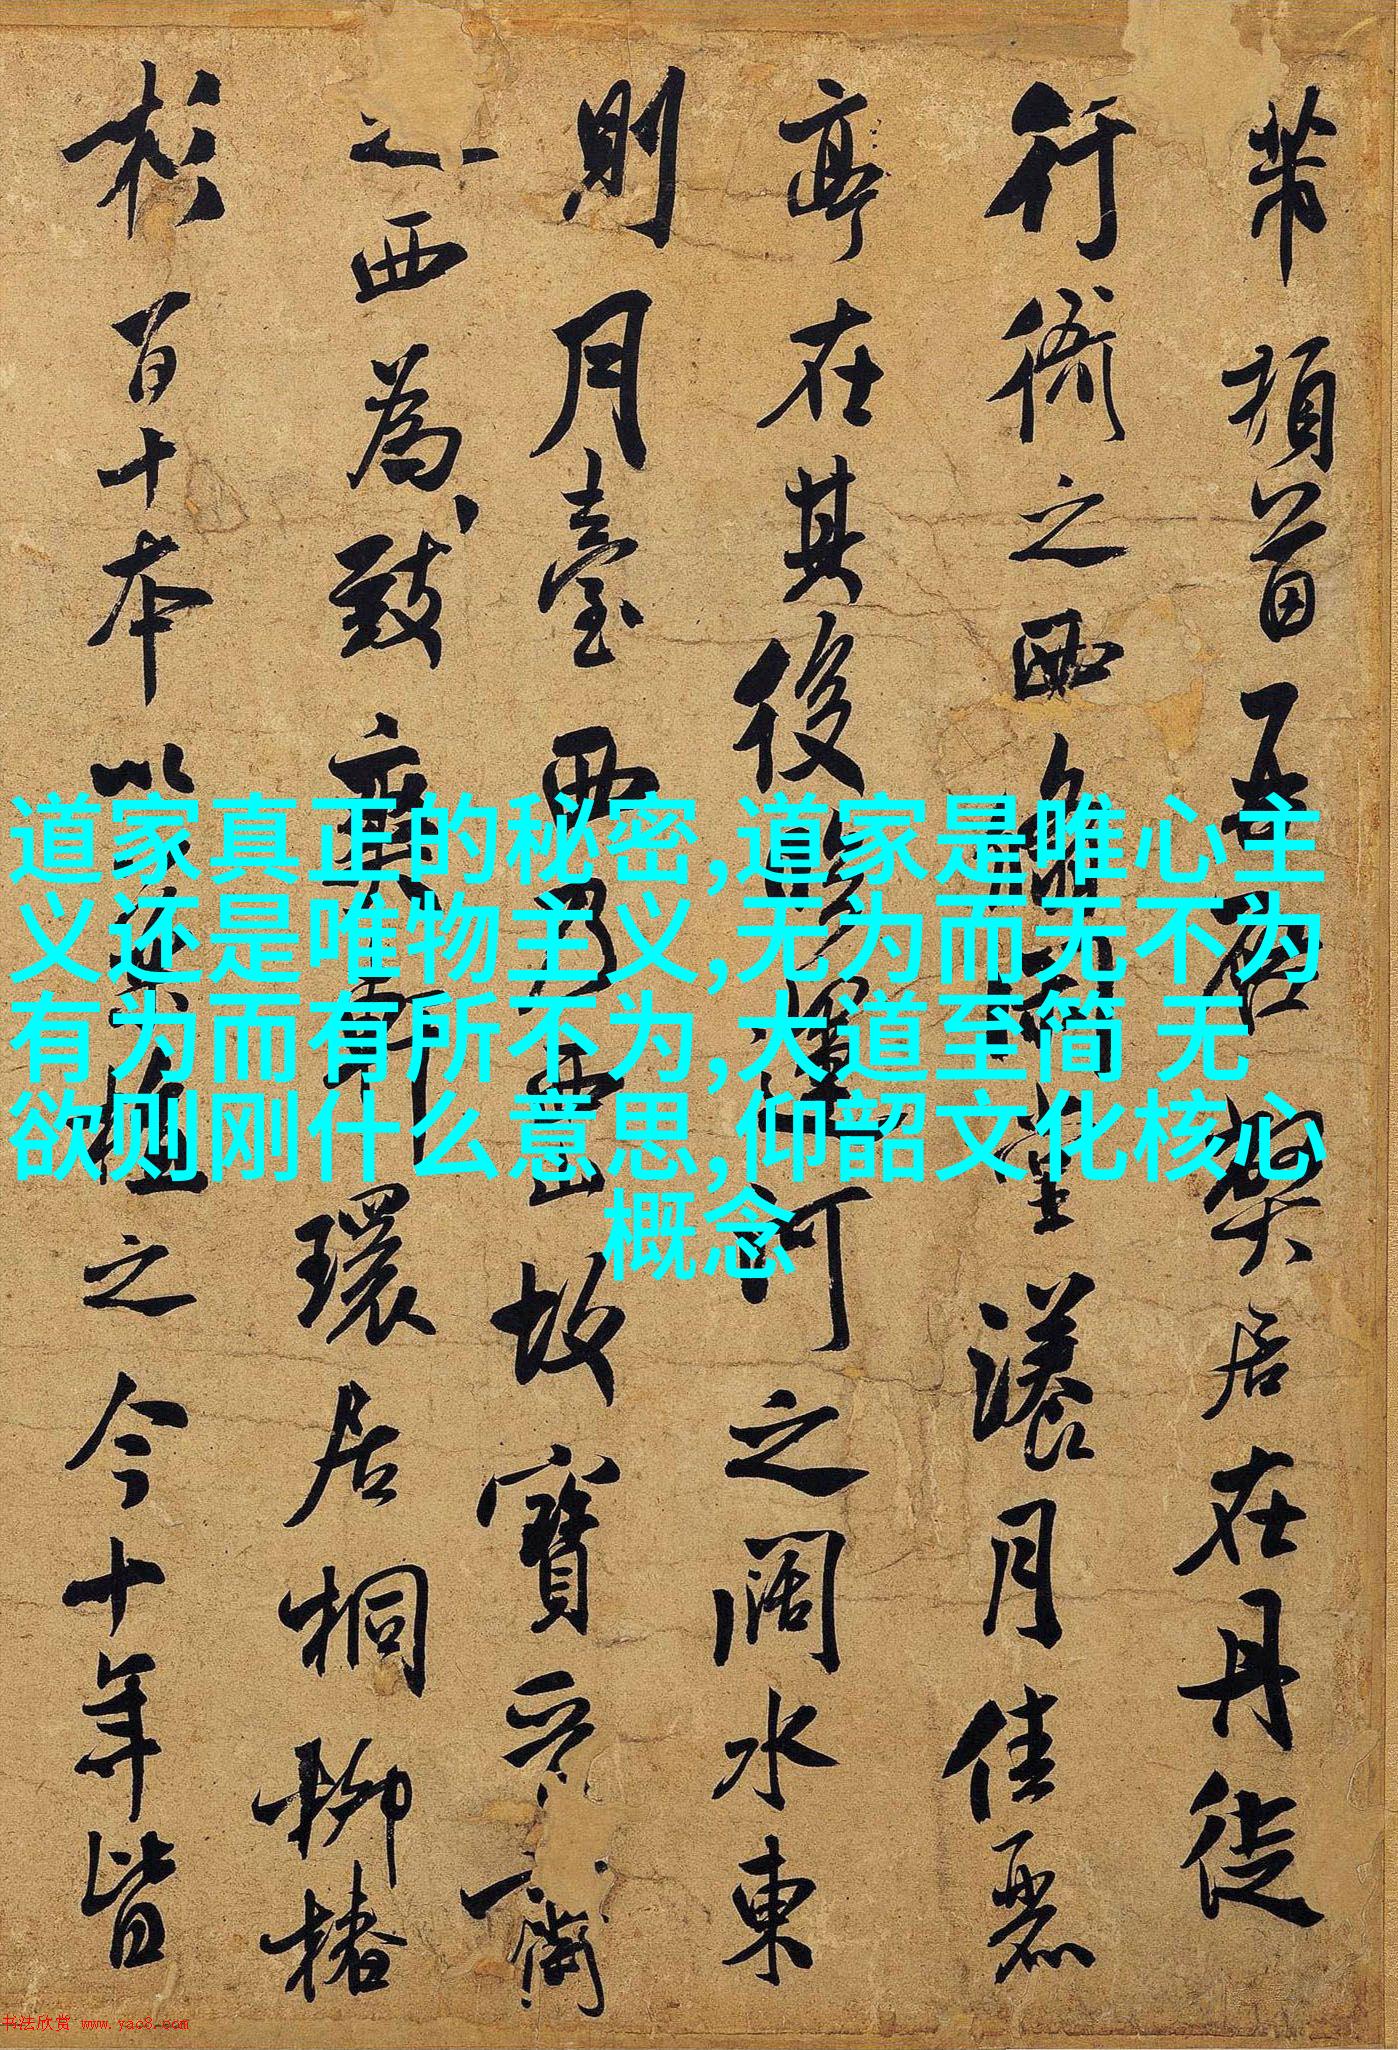 芾頓首再啓弊居在丹徒
行衙之西翛閑堂漾月佳麗
亭在其後臨運河之闊水東
則月臺西乃西山故寶晉齋
之西為致爽軒環居桐柳椿
杉百十本以藥植之今十年皆
道家真正的秘密,道家是唯心主
义还是唯物主义,无为而无不为
有为而有所不为,大道至简 无
欲则刚什么意思,仰韶文化核心
概念
书法欣赏 www.yac8.com